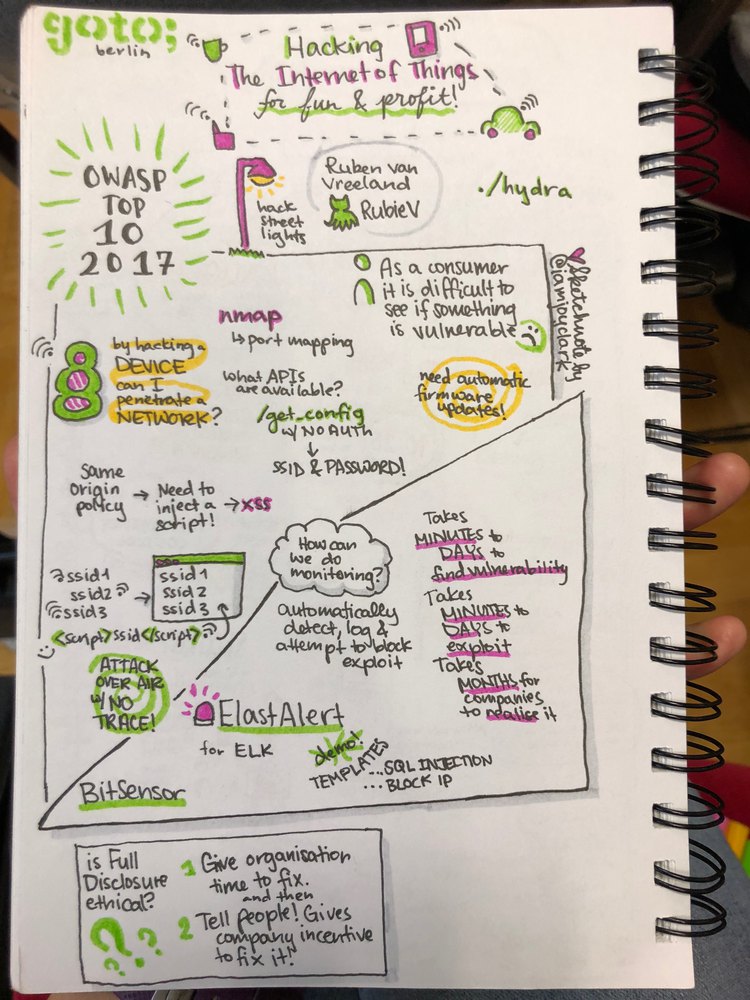 goto;
berlin
Hacking
The Internet of Things
for fun & profit!
OWASP
TOP
10
2017
hack
street
lights
Ruben van
Vreeland
RubieV
./hydra
Sketchnote by
@iamjoyclark
As a consumer
it is difficult to
see if something
is vulnerable
nmap
↳ port mapping
by hacking a
DEVICE
can I
penetrate a
NETWORK?
what APIs
are available?
/get_config
w/ NO AUTH
↓
SSID & PASSWORD!
need automatic
firmware
updates!
Same
origin
policy
→ Need to
inject a
script!
→ XSS
ssid1
ssid2
ssid3
<script>ssid</script>
→
ssid1
ssid2
ssid3
ATTACK
OVER AIR
w/ NO
TRACE!
How can
we do
monitoring?
automatically
detect, log &
attempt to block
exploit
Takes
MINUTES to
DAYS to
find vulnerability
Takes
MINUTES to
DAYS to
exploit
Takes
MONTHS for
companies
to realise it
ElastAlert
for ELK
demo!
TEMPLATES
...SQL INJECTION
...BLOCK IP
BitSensor
is Full
Disclosure
ethical?
???
1 Give organisation
time to fix.
and then
2 Tell people! Gives
company incentive
to fix it!